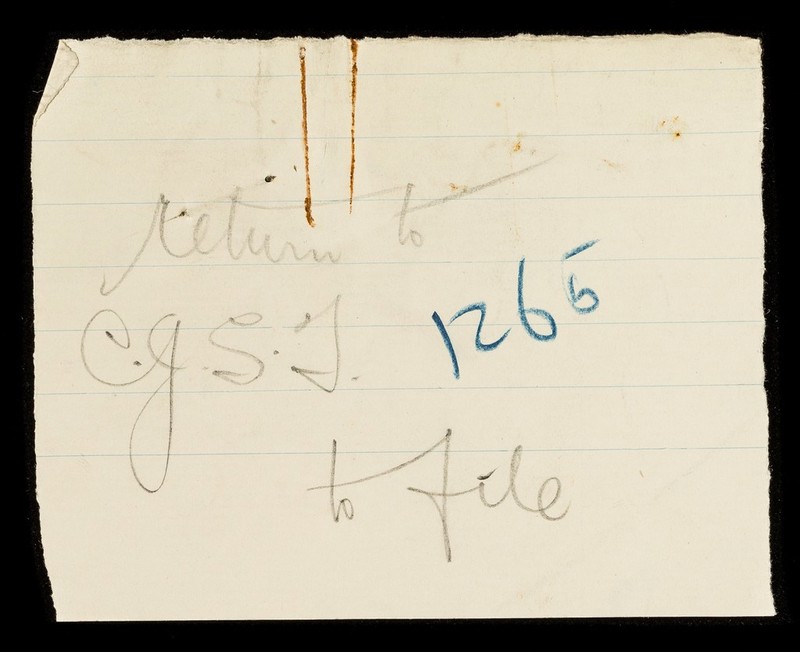 return to
C.J.S.T. 1265
to file